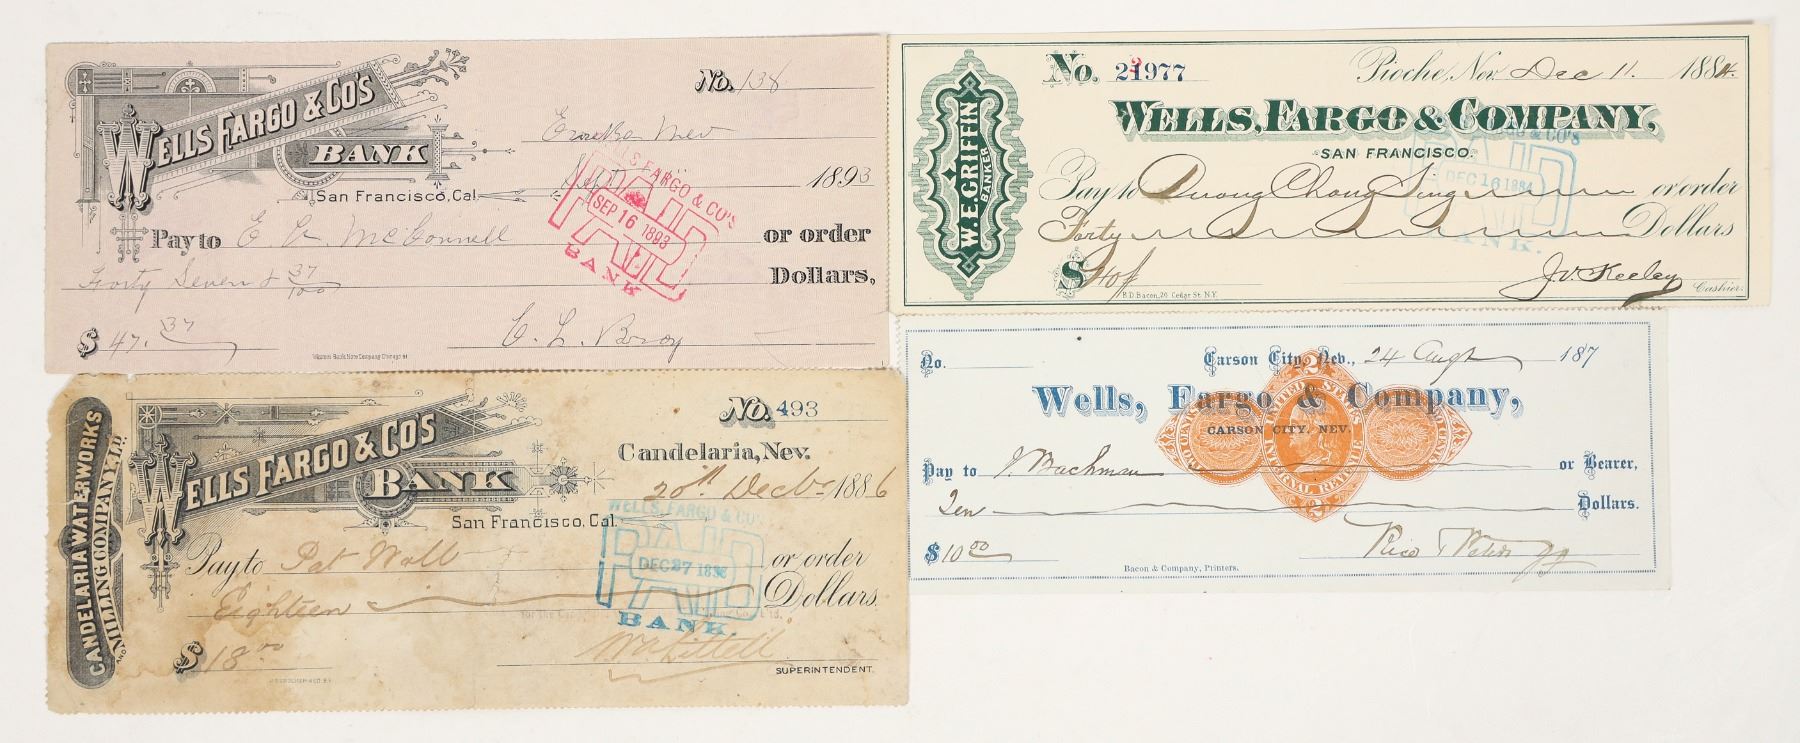 WELLS FARGO & CO'S
BANK
San Francisco, Cal.
No. 138
Eureka Nev
Sept 1893
Pay to E L McConnell or order
Forty Seven & 37/100 Dollars,
$ 47.37
Western Bank Note Company Chicago
WELLS FARGO & CO'S
PAID
SEP 16 1893
BANK
W. E. GRIFFIN
BANKER
No. 21977
Pioche, Nev Dec 11. 1884.
WELLS, FARGO & COMPANY,
SAN FRANCISCO.
Pay to Quong Chong Sing or order
Forty Dollars
$ 40
J.V. Keeley
Cashier.
B.D. Bacon, 20 Cedar St. N.Y.
& CO'S
PAID
DEC 16 1884
BANK.
CANDELARIA WATERWORKS
AND MILLING COMPANY, L'D.
WELLS FARGO & CO'S
BANK
San Francisco, Cal.
No. 493
Candelaria, Nev.
20th Decbr 1886
Pay to Pat Wall or order
Eighteen Dollars.
$ 18.00
SUPERINTENDENT.
WELLS, FARGO & CO'S
PAID
DEC 27 1886
BANK
No.
Carson City, Nev., 24 Augt 187
Wells, Fargo & Company,
CARSON CITY, NEV.
Pay to J. Bachman or Bearer,
Ten Dollars.
$ 10.00
Bacon & Company, Printers.
2
UNITED STATES
INTERNAL REVENUE
2